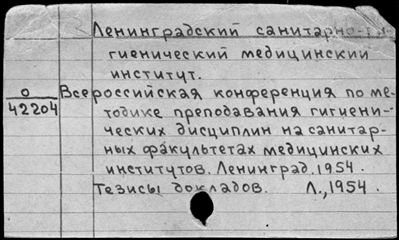 Ленинградский санитарно-ги-
гиенический медицинский
институт.
О Всероссийская конференция по ме-
42204 тодике преподавания гигиени-
ческих дисциплин на санитар-
ных факультетах медицинских
институтов. Ленинград. 1954.
Тезисы докладов. Л., 1954.